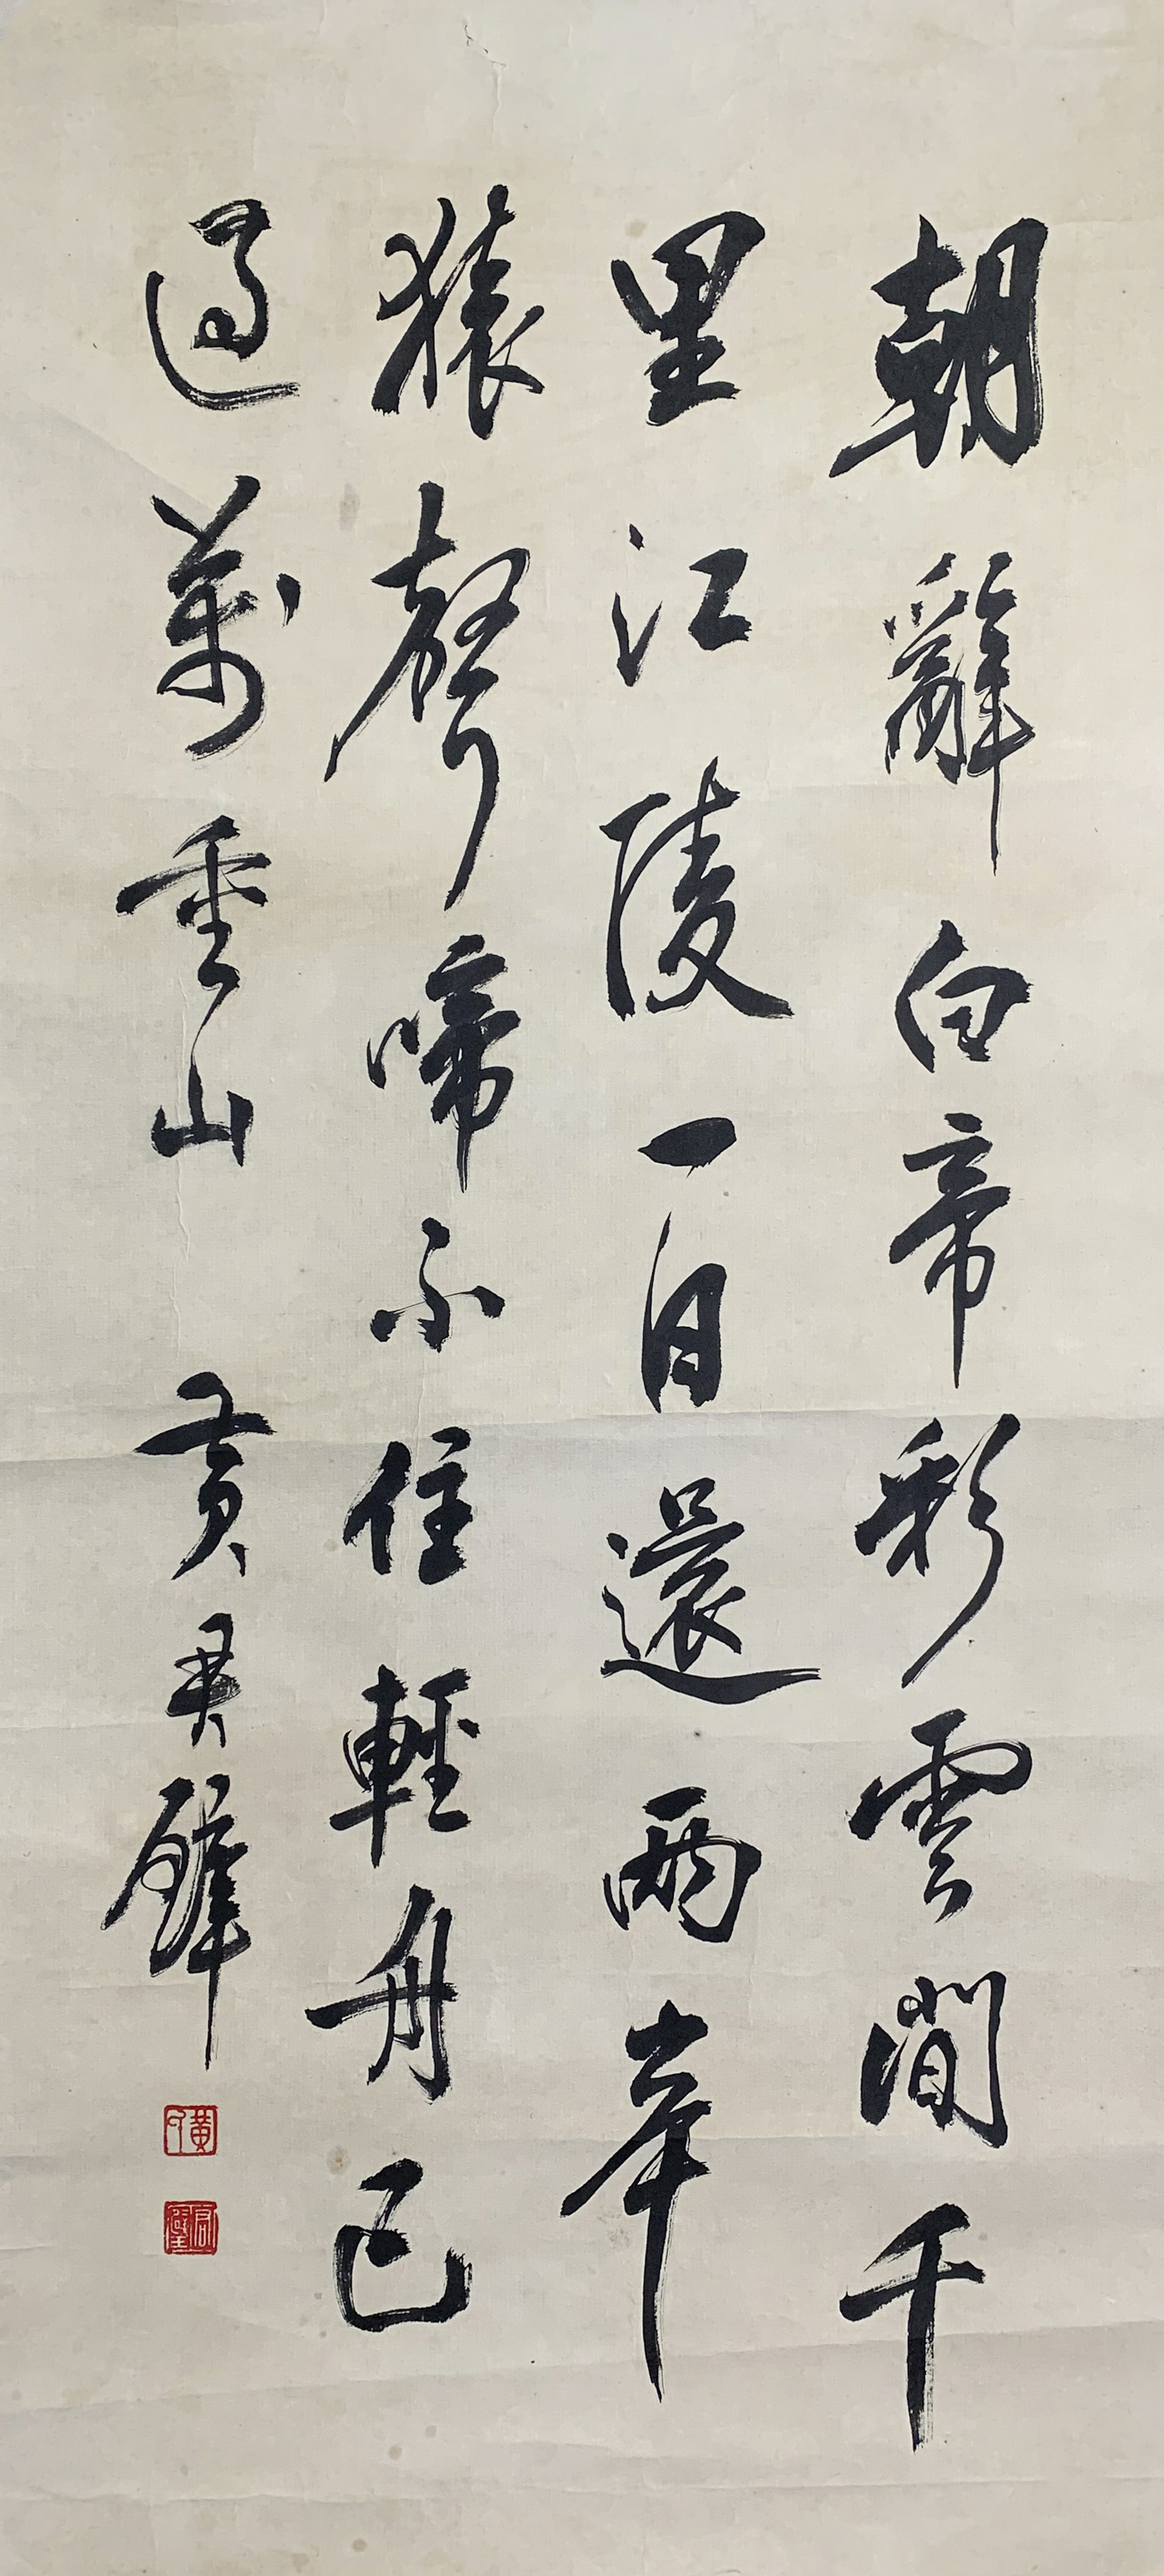 朝辭白帝彩雲間千
里江陵一日還兩岸
猿聲啼不住輕舟已
過萬重山 黃君璧
黃
君璧